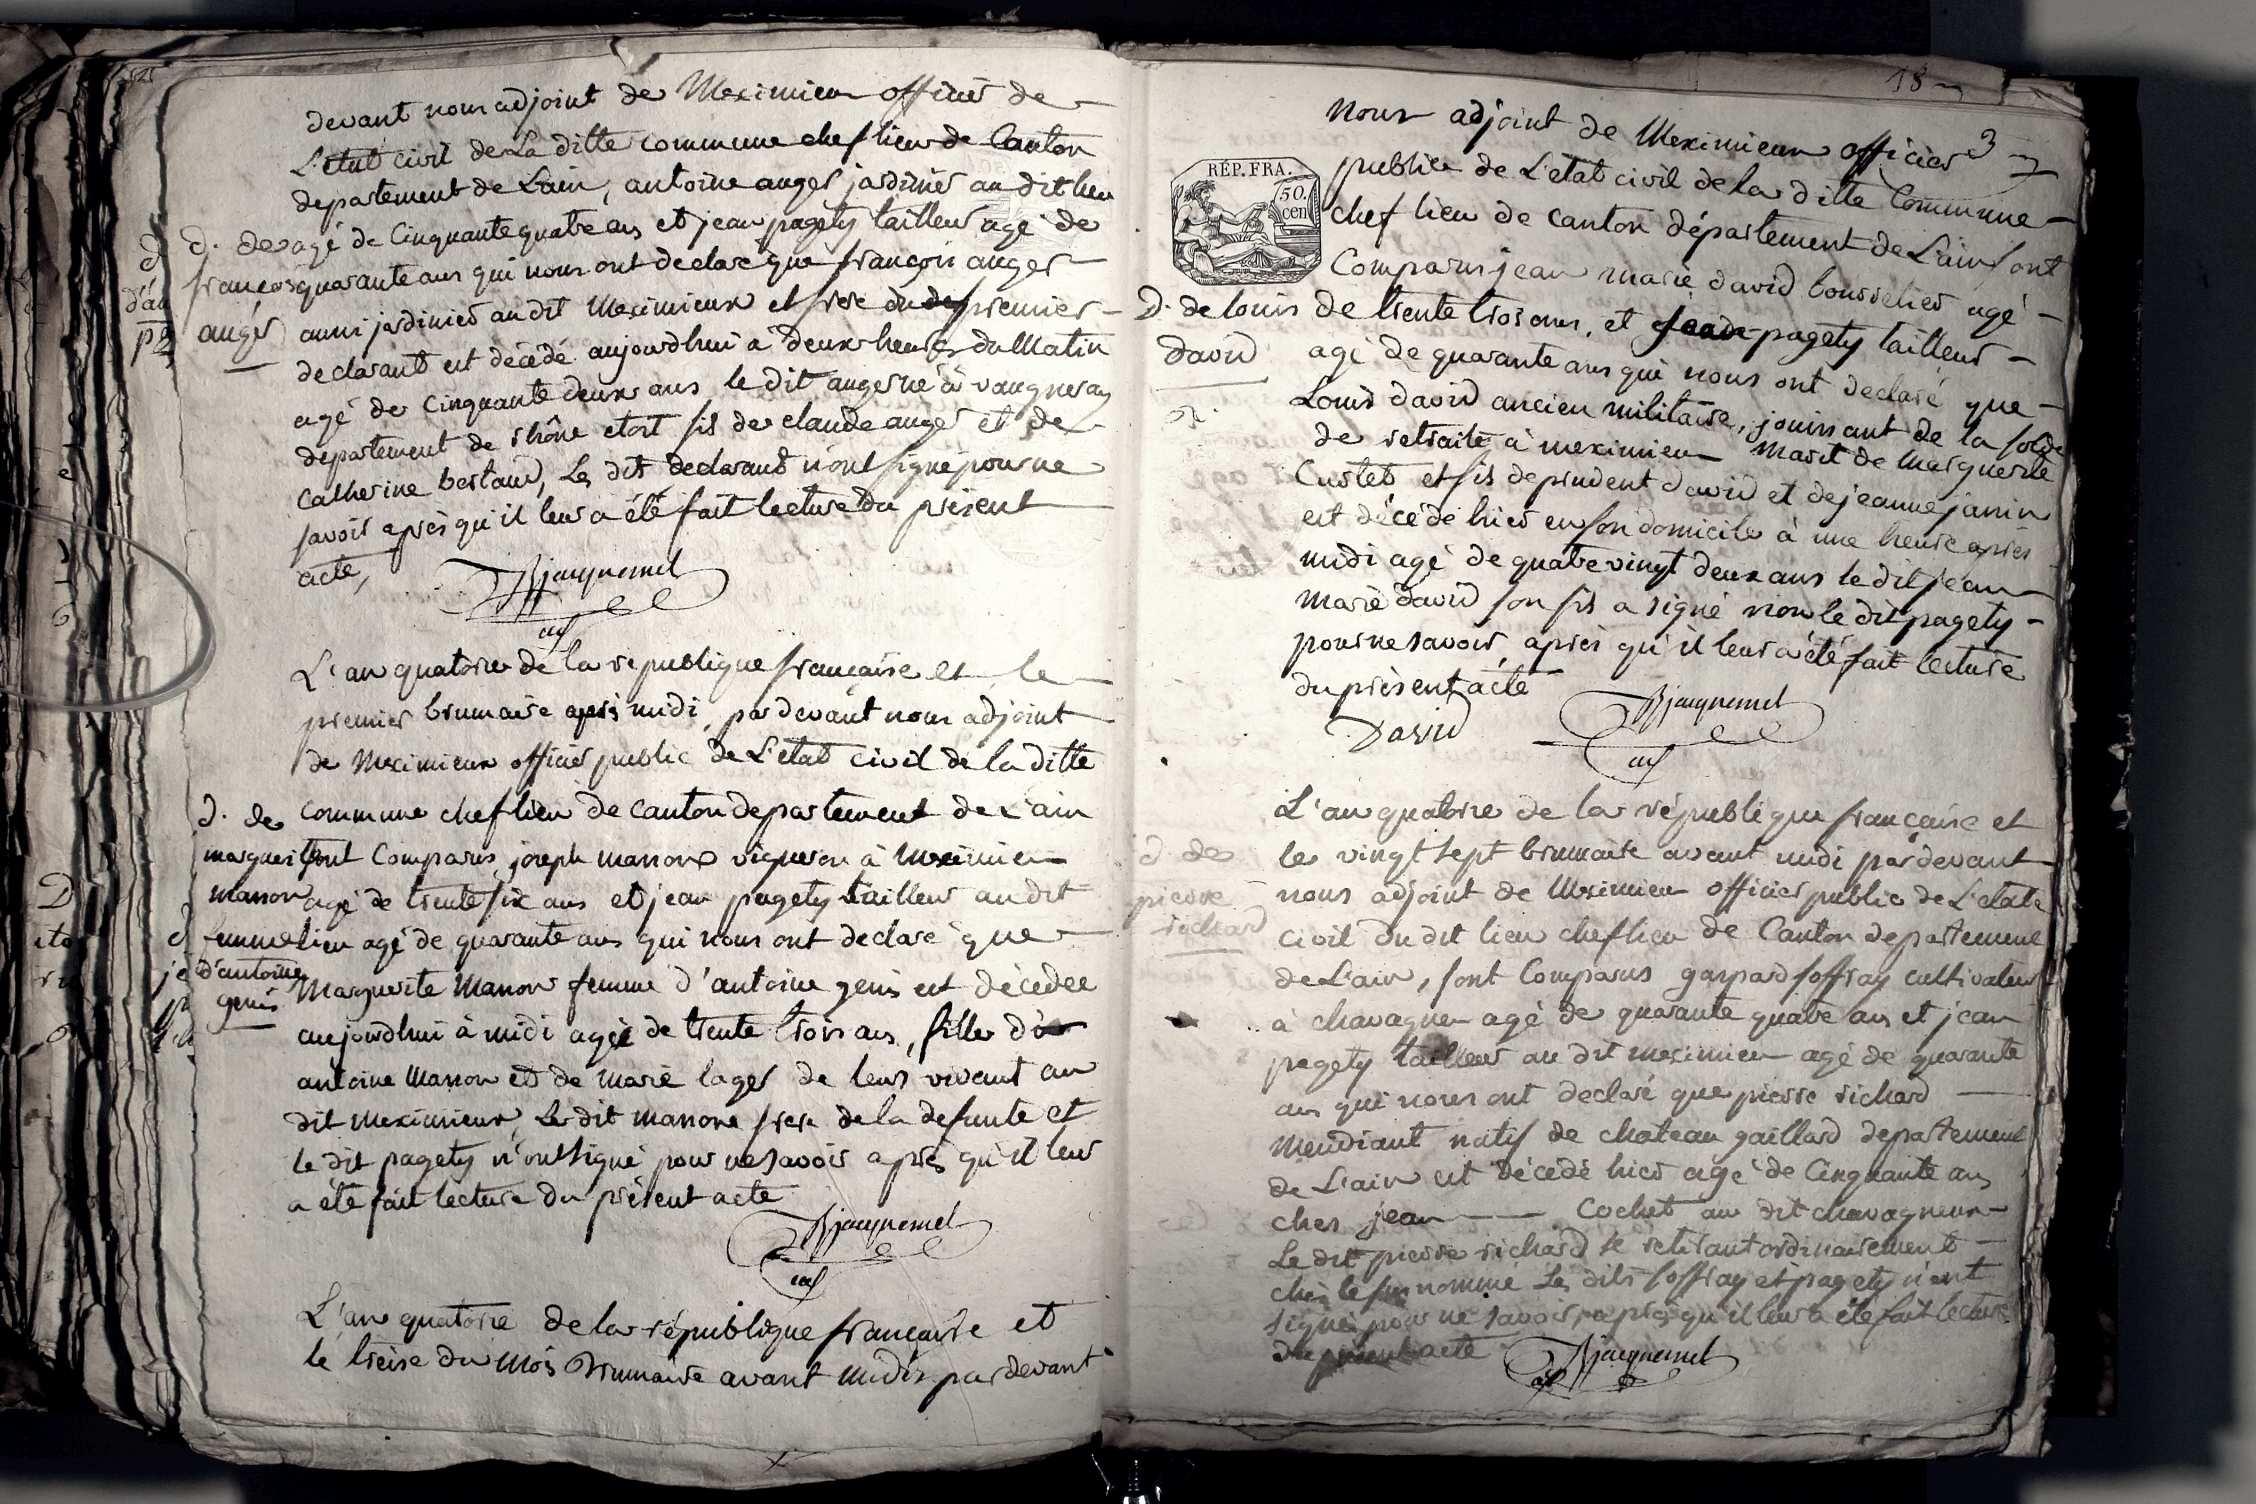 devant nous adjoint de Meximieux officier de
L'etat civil de La ditte commune chef lieu de Canton
departement de Lain, antoine auger jardinier au dit lieu
d. de agé de Cinquante quatre ans et jean pagety tailleur agé de
françois quarante ans qui nous ont declaré que françois auger
auger aussi jardinier au dit Meximieux et frere du premier
declarant est décédé aujourdhui à deux heures du Matin
agé de cinquante deux ans le dit auger né à vaugneray
departement de rhône etoit fils de claude auger et de
Catherine bertaud, Les dits declarants n'ont signé pour ne
savoir après qu'il leur a été fait lecture du présent
acte,
Bjacquemet
adj
L'an quatorze de la republique française et le
premier brumaire après midi, par devant nous adjoint
de Meximieux officier public de L'état civil de la ditte
d. de commune chef lieu de canton departement de L'ain
marguerite sont Comparus joseph manon vigneron à Meximieux
manon agé de trente six ans et jean pagety tailleur au dit
femme lieu agé de quarante ans qui nous ont declaré que
d'antoine Marguerite Manon femme d'antoine genis est décédée
genis
aujourdhui à midi agée de trente trois ans, fille d'
antoine Manon et de Marie lager de leur vivant au
dit meximieux, Le dit manon frere de la defunte et
le dit pagety n'ont signé pour ne savoir après qu'il leur
a été fait lecture du présent acte
Bjacquemet
adj
L'an quatorze de la république française et
le treize du Mois Brumaire avant Midi par devant
18
3
Nous adjoint de Meximieux officier
public de L'état civil de la ditte Commune
RÉP. FRA.
50.
cen
chef lieu de canton département de L'ain sont
Comparus jean marie david bourrelier agé
d. de louis de trente trois ans, et jean pagety tailleur
david agé de quarante ans qui nous ont declaré que
Louis david ancien militaire, jouissant de la solde
de retraite à meximieux Marit de Marguerite
Curtet et fils de prudent david et de jeanne janin
est décédé hier en son domicile à une heure après
midi agé de quatre vingt deux ans le dit jean
Marie david son fils a signé non le dit pagety
pour ne savoir, après qu'il leur a été fait lecture
du présent acte
David
Bjacquemet
adj
L'an quatorze de la république française et
d. de le vingt sept brumaire avant midi par devant
pierre nous adjoint de Meximieux officier public de L'état
richard civil du dit lieu chef lieu de Canton departement
de L'ain, sont Comparus gaspard soffray cultivateur
à chavagneu agé de quarante quatre ans et jean
pagety tailleur au dit meximieu agé de quarante
ans qui nous ont declaré que pierre richard
Mendiant natif de chateau gaillard departement
de L'ain est décédé hier agé de Cinquante ans
chez jean Cochet au dit chavagneux
Le dit pierre richard se retirant ordinairement
chez le susnommé Les dits soffray et pagety n'ont
signé pour ne savoir, après qu'il leur a été fait lecture
du présent acte
Bjacquemet
adj